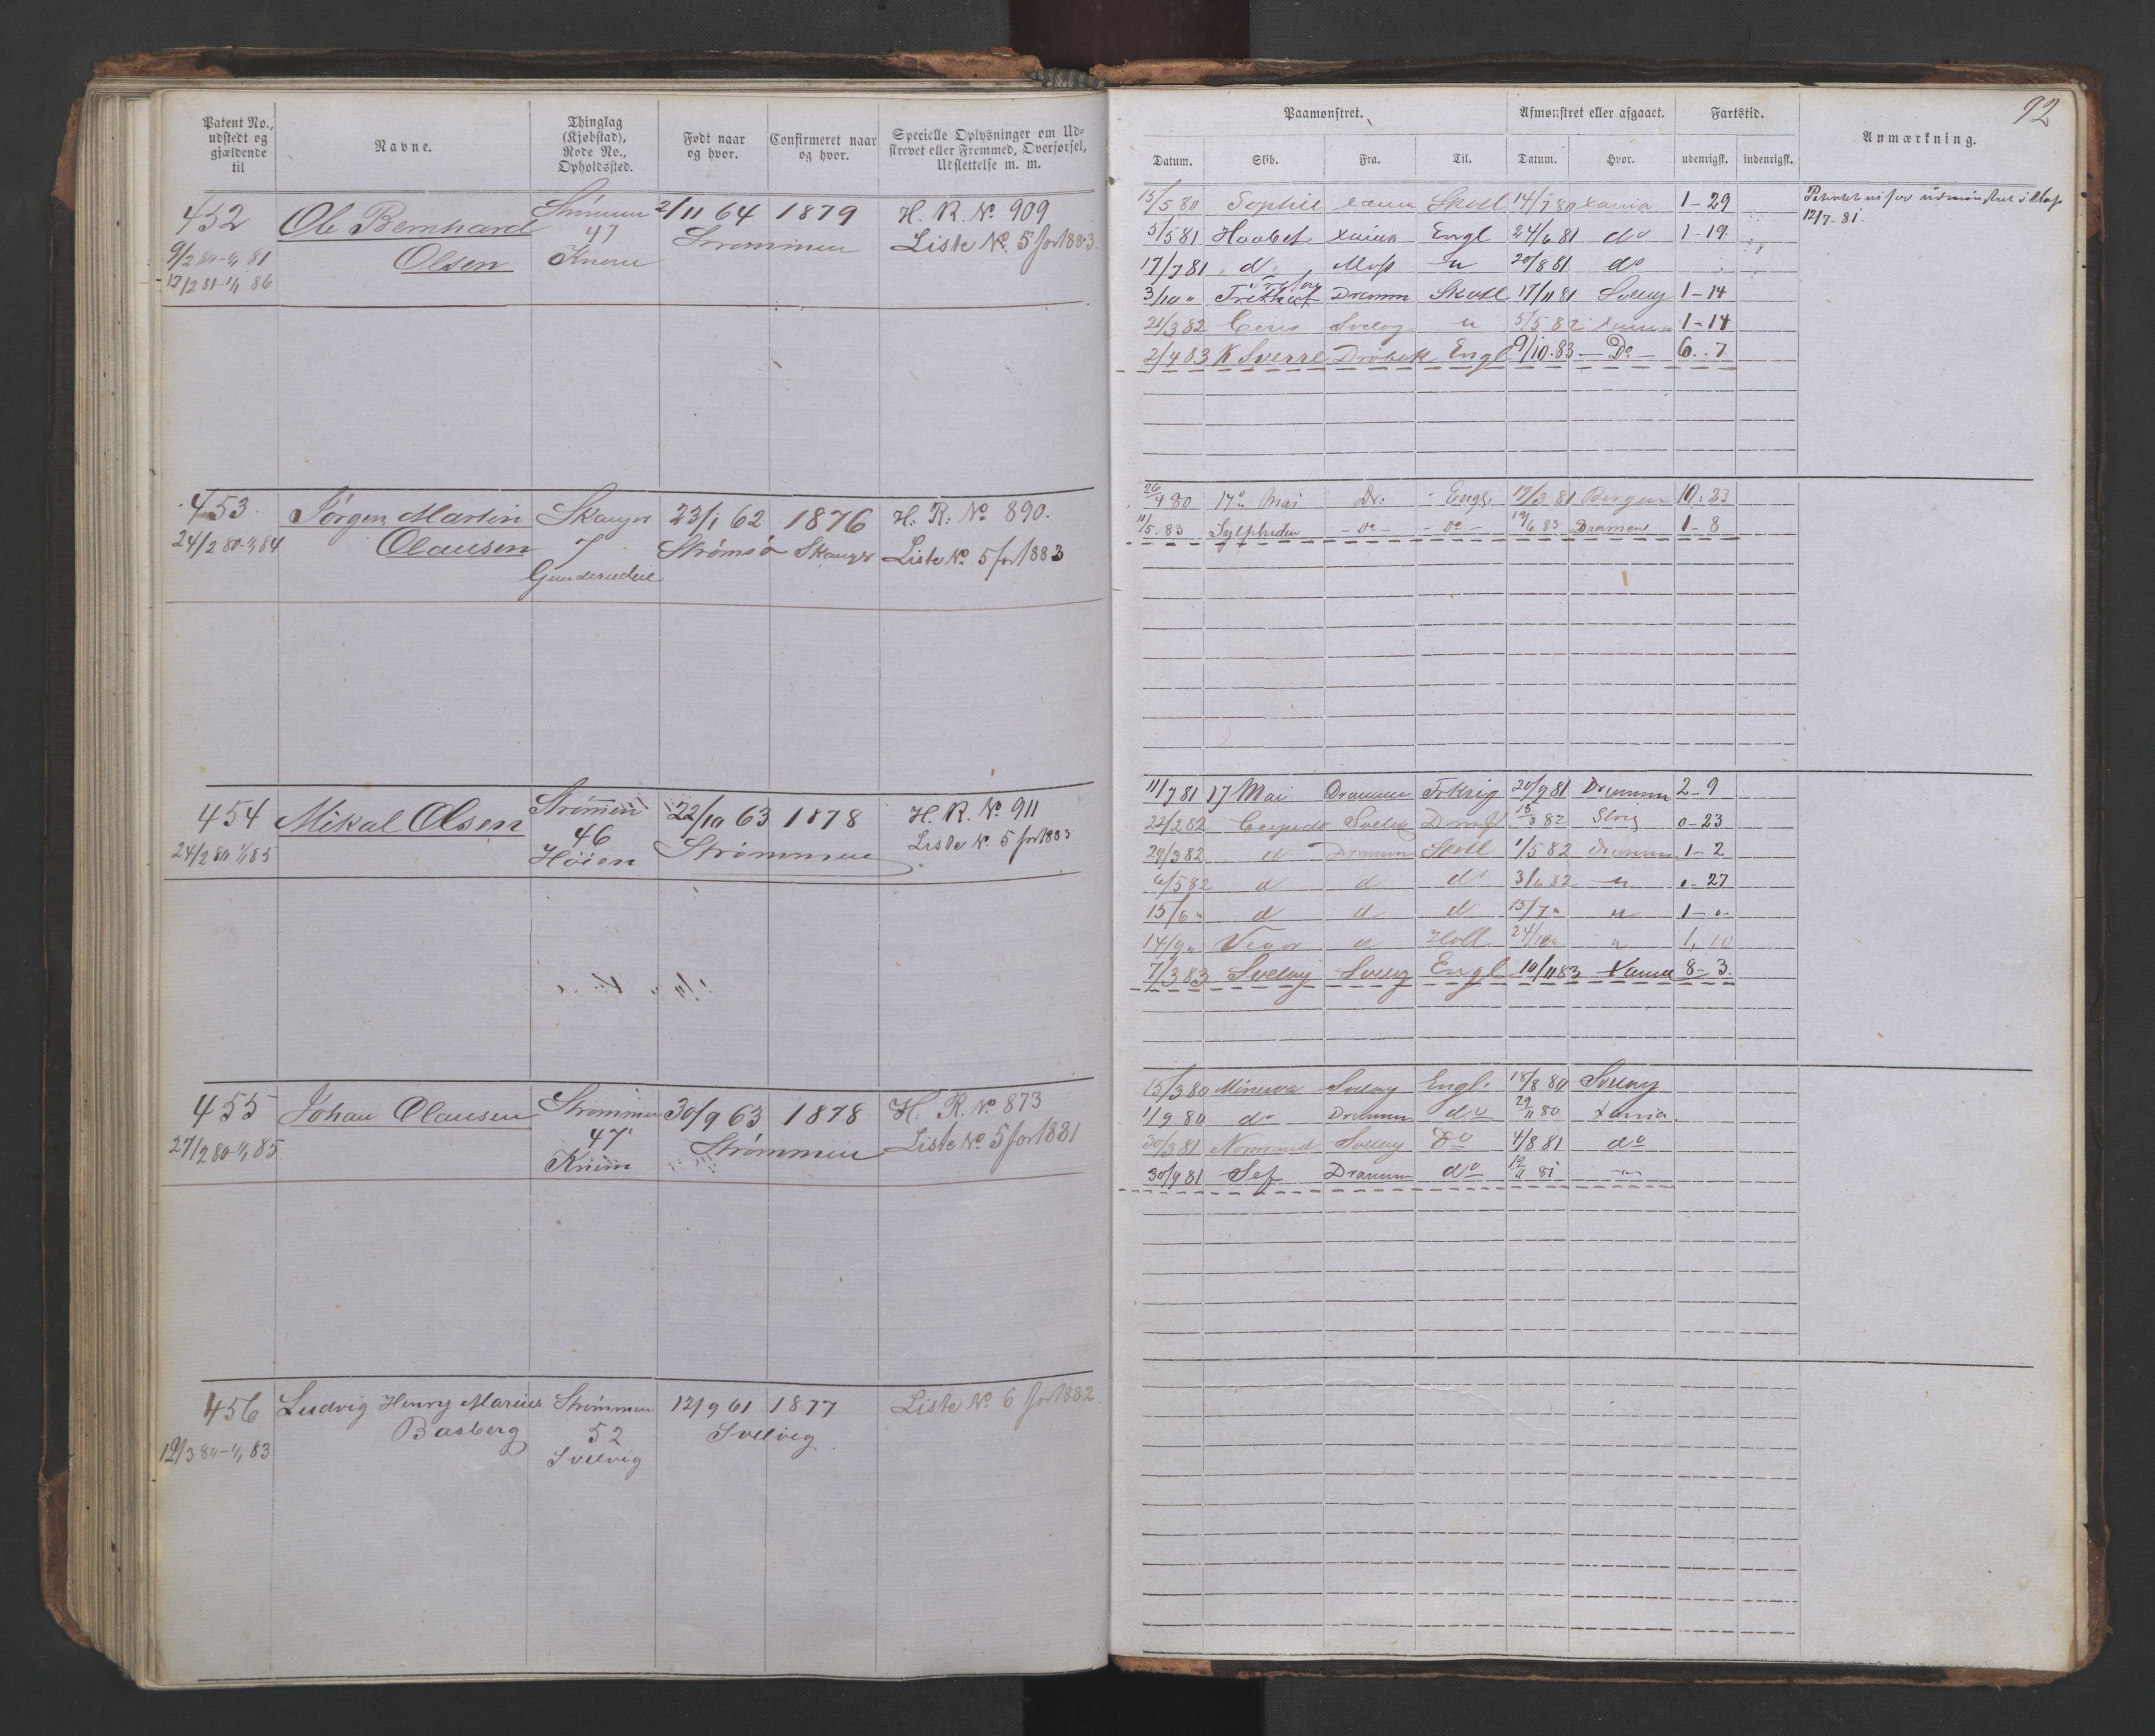 Patent No.,
udstedt og
gjældende
til
Navne.
Thinglag
(Kjøbstad),
Rode No.,
Opholdssted.
Født naar
og hvor.
Confirmeret naar
og hvor.
Specielle Oplysninger om Ud-
skrevet eller Fremmed, Overførsel,
Udslettelse m. m.
452
Ole Bernhard
Olsen
9/2 80-1/1 81
17/12 81-1/1 86
Strømm
47
2/11 64
Strømmen
1879
H. R. No 909
Liste No. 5 for 1883.
453
24/2 80-1/1 84
Jørgen Martin
Olausen
Skauger
7
23/1 62
Strømsø
1876
Skauger
H. R. No 890.
Liste No 5 for 1883
454
24/2 80 1/1 85
Mikal Olsen
Strømmen
46
Höien
22/10 63
Strømmen
1878
H. R. No 911
Liste No. 5 for 1883
455
27/2 80-1/1 85
Johan Olausen
Strømmen
47
30/9 63
Strømmen
1878
H. R. No 873
Liste No 5 for 1881
456
19/3 80-1/1 83
Ludvig Henry Marius
Basberg
Strømmen
52
Svelvig
12/9 61
1877
Svelvig
Liste No. 6 for 1882
92
Paamønstret.
Afmønstret eller afgaaet.
Fartstid.
Anmærkning.
Datum.
Skib.
Fra.
Til.
Datum.
Hvor.
udenrigsk.
indenrigsk.
15/5 80 Sophie Skotl 14/7 80 Xania 1-29
12/7-81
5/5 81 Haabet Xania Engl 24/6 81 do 1-19
17/7 81 do Moss " 20/8 81 do
3/10 " Dramm Skotl 17/11 81 Svelvig 1-14
21/3 82 Ceres Svelvig " 5/5 82 Xania 1-14
2/4 83 K Sverre Drøbak Engl 9/10.83 - Do - 6..7
26/4 80 17de Mai Dr. Engl. 19/3 81 Bergen 10:23
11/5.83 Sylphiden - Do - - Do - 19/6 83 Dramen 1-8
11/7 81 17 Mai Drammen 20/9 81 Drammen 2-9
22/2 82 Svelvig 15/3 82 0-23
29/3 82 do Drammen Skotl 1/5 82 Drammen 1-2
6/5 82 d d d 3/6 82 " 0-27
15/6 " d d d 15/7 " " 1-0
14/9 " Vega " Holl. 24/10 " " 1, 10
7/3 83 Svelvig Svelvig Engl 10/11 83 Xania 8-3.
15/3 80 Minerva Svelvig Engl. 18/8 80 Svelvig
1/9 80 do Drammen do 29/11 80 Xania.
30/3 81 Normand Svelvig Do 4/8 81 do
30/9 81 Sef Drammen do 12/11 81 "